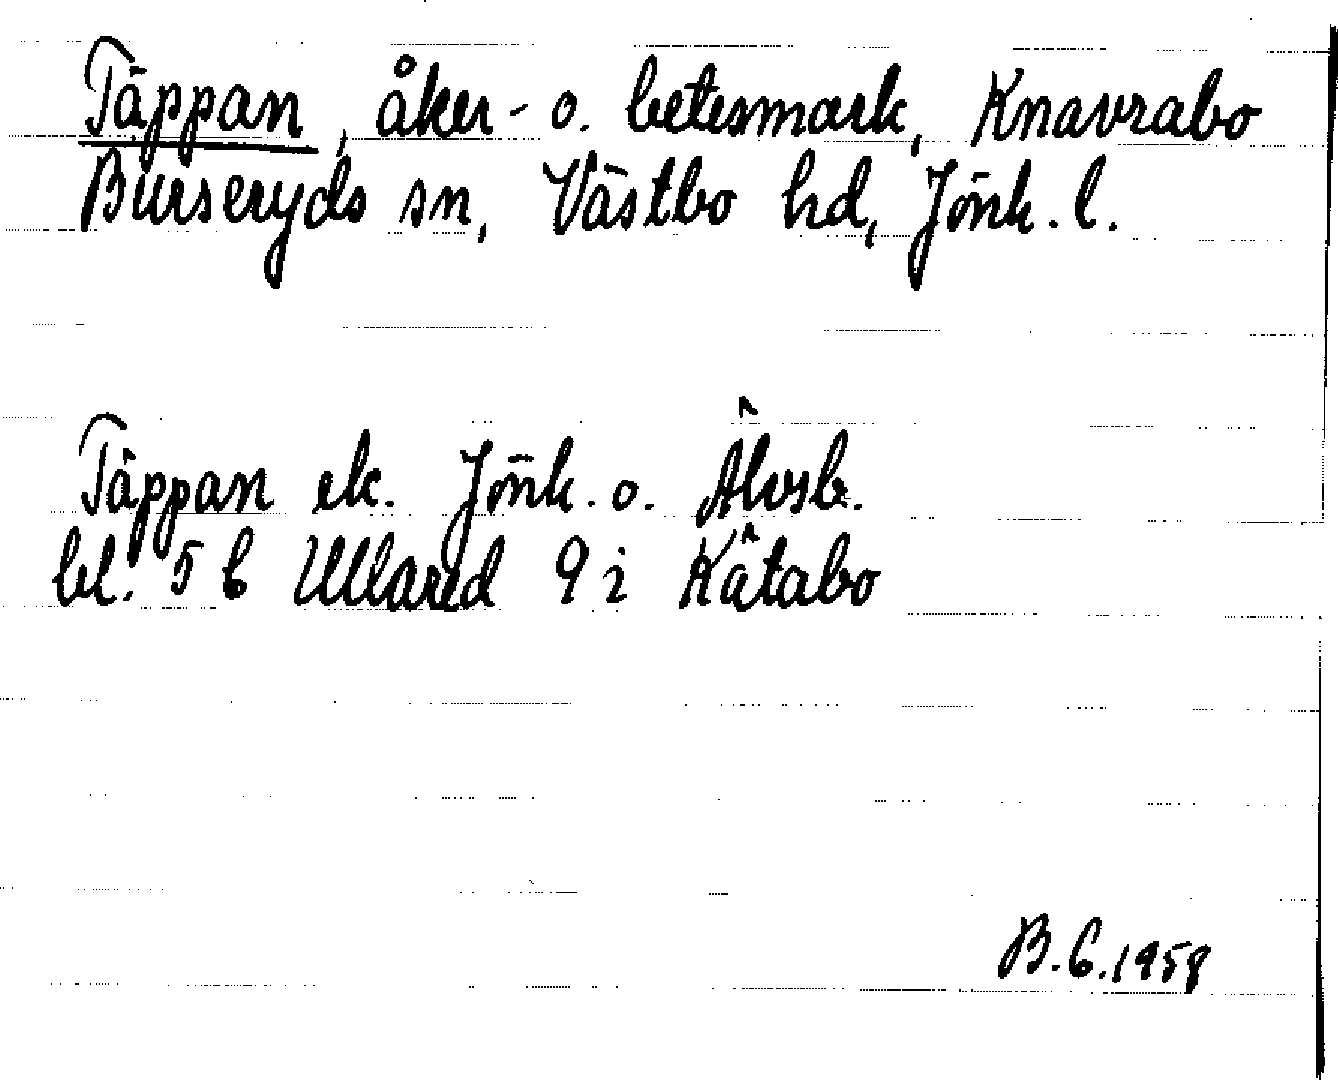 Täppan, åker- o. betesmark, Knavrabo
Burseryds sn, Västbo hd, Jönk. l.
Täppan ek. Jönk. o. Älvsb.
bl. 5 b Ullared 9 i Kåtabo
B.G.1958